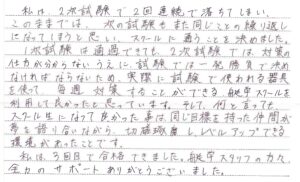 私は、2次試験で2回連続で落ちてしまい、
このままでは、次の試験もまた同じことの繰り返し
になってしまうと思い、スクールに通うことを決めました。
1次試験は通過できても、2次試験では、対策の
仕方が分からないうえに、試験では一発勝負で決め
なければならないため、実際に試験で使われる器具
を使って、毎週対策することができる艇学スクールを
利用して良かったと思っています。そして、何と言っても、
スクール生になって良かった事は、同じ目標を持った仲間が
夢を語り合いながら、切磋琢磨し、レベルアップできる
環境があったことです。
私は、3回目で合格できました。艇学スタッフの方々、
全力のサポートありがとうございました。